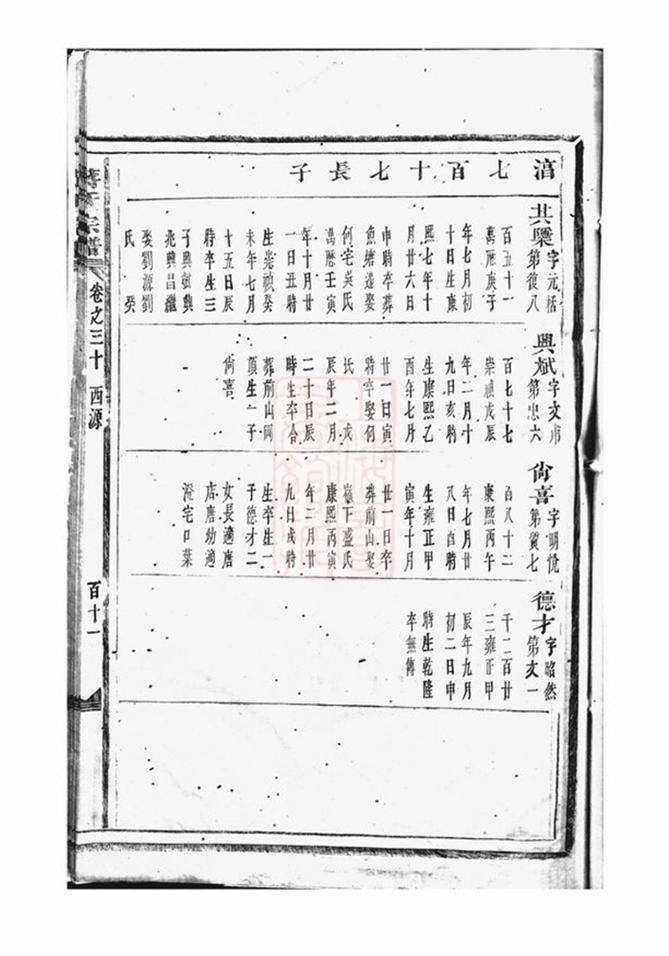 湻七百十七長子
其㯬字元栝
第復八
百五十一
萬厯庚子
年七月初
十日生康
熙七年十
月廿六日
申時卒葬
魚塘邉娶
何宅吳氏
萬厯壬寅
年十月廿
一日丑時
生崇禎癸
未年七月
十五日辰
時卒生三
子興斌興
兆興昌繼
娶劉源劉
氏 癸
興斌字文甫
第忠六
百七十七
崇禎戊辰
年二月十
九日亥時
生康熙乙
酉年七月
廿一日寅
時卒娶何
氏 戊
辰年二月
二十日辰
時生卒合
葬前山岡
頂生一子
尙喜
尙喜字明悅
第質七
百八十二
康熙丙午
年七月廿
八日酉時
生雍正甲
寅年十月
廿一日卒
葬前山娶
嶺下盛氏
康熙丙寅
年三月廿
九日戌時
生卒生一
子德才二
女長適唐
店唐幼適
灣宅口葉
德才字昭然
第文一
千二百廿
三雍正甲
辰年九月
初二日申
時生乾隆
卒無傳
宗譜
卷之三十 西源
百十一